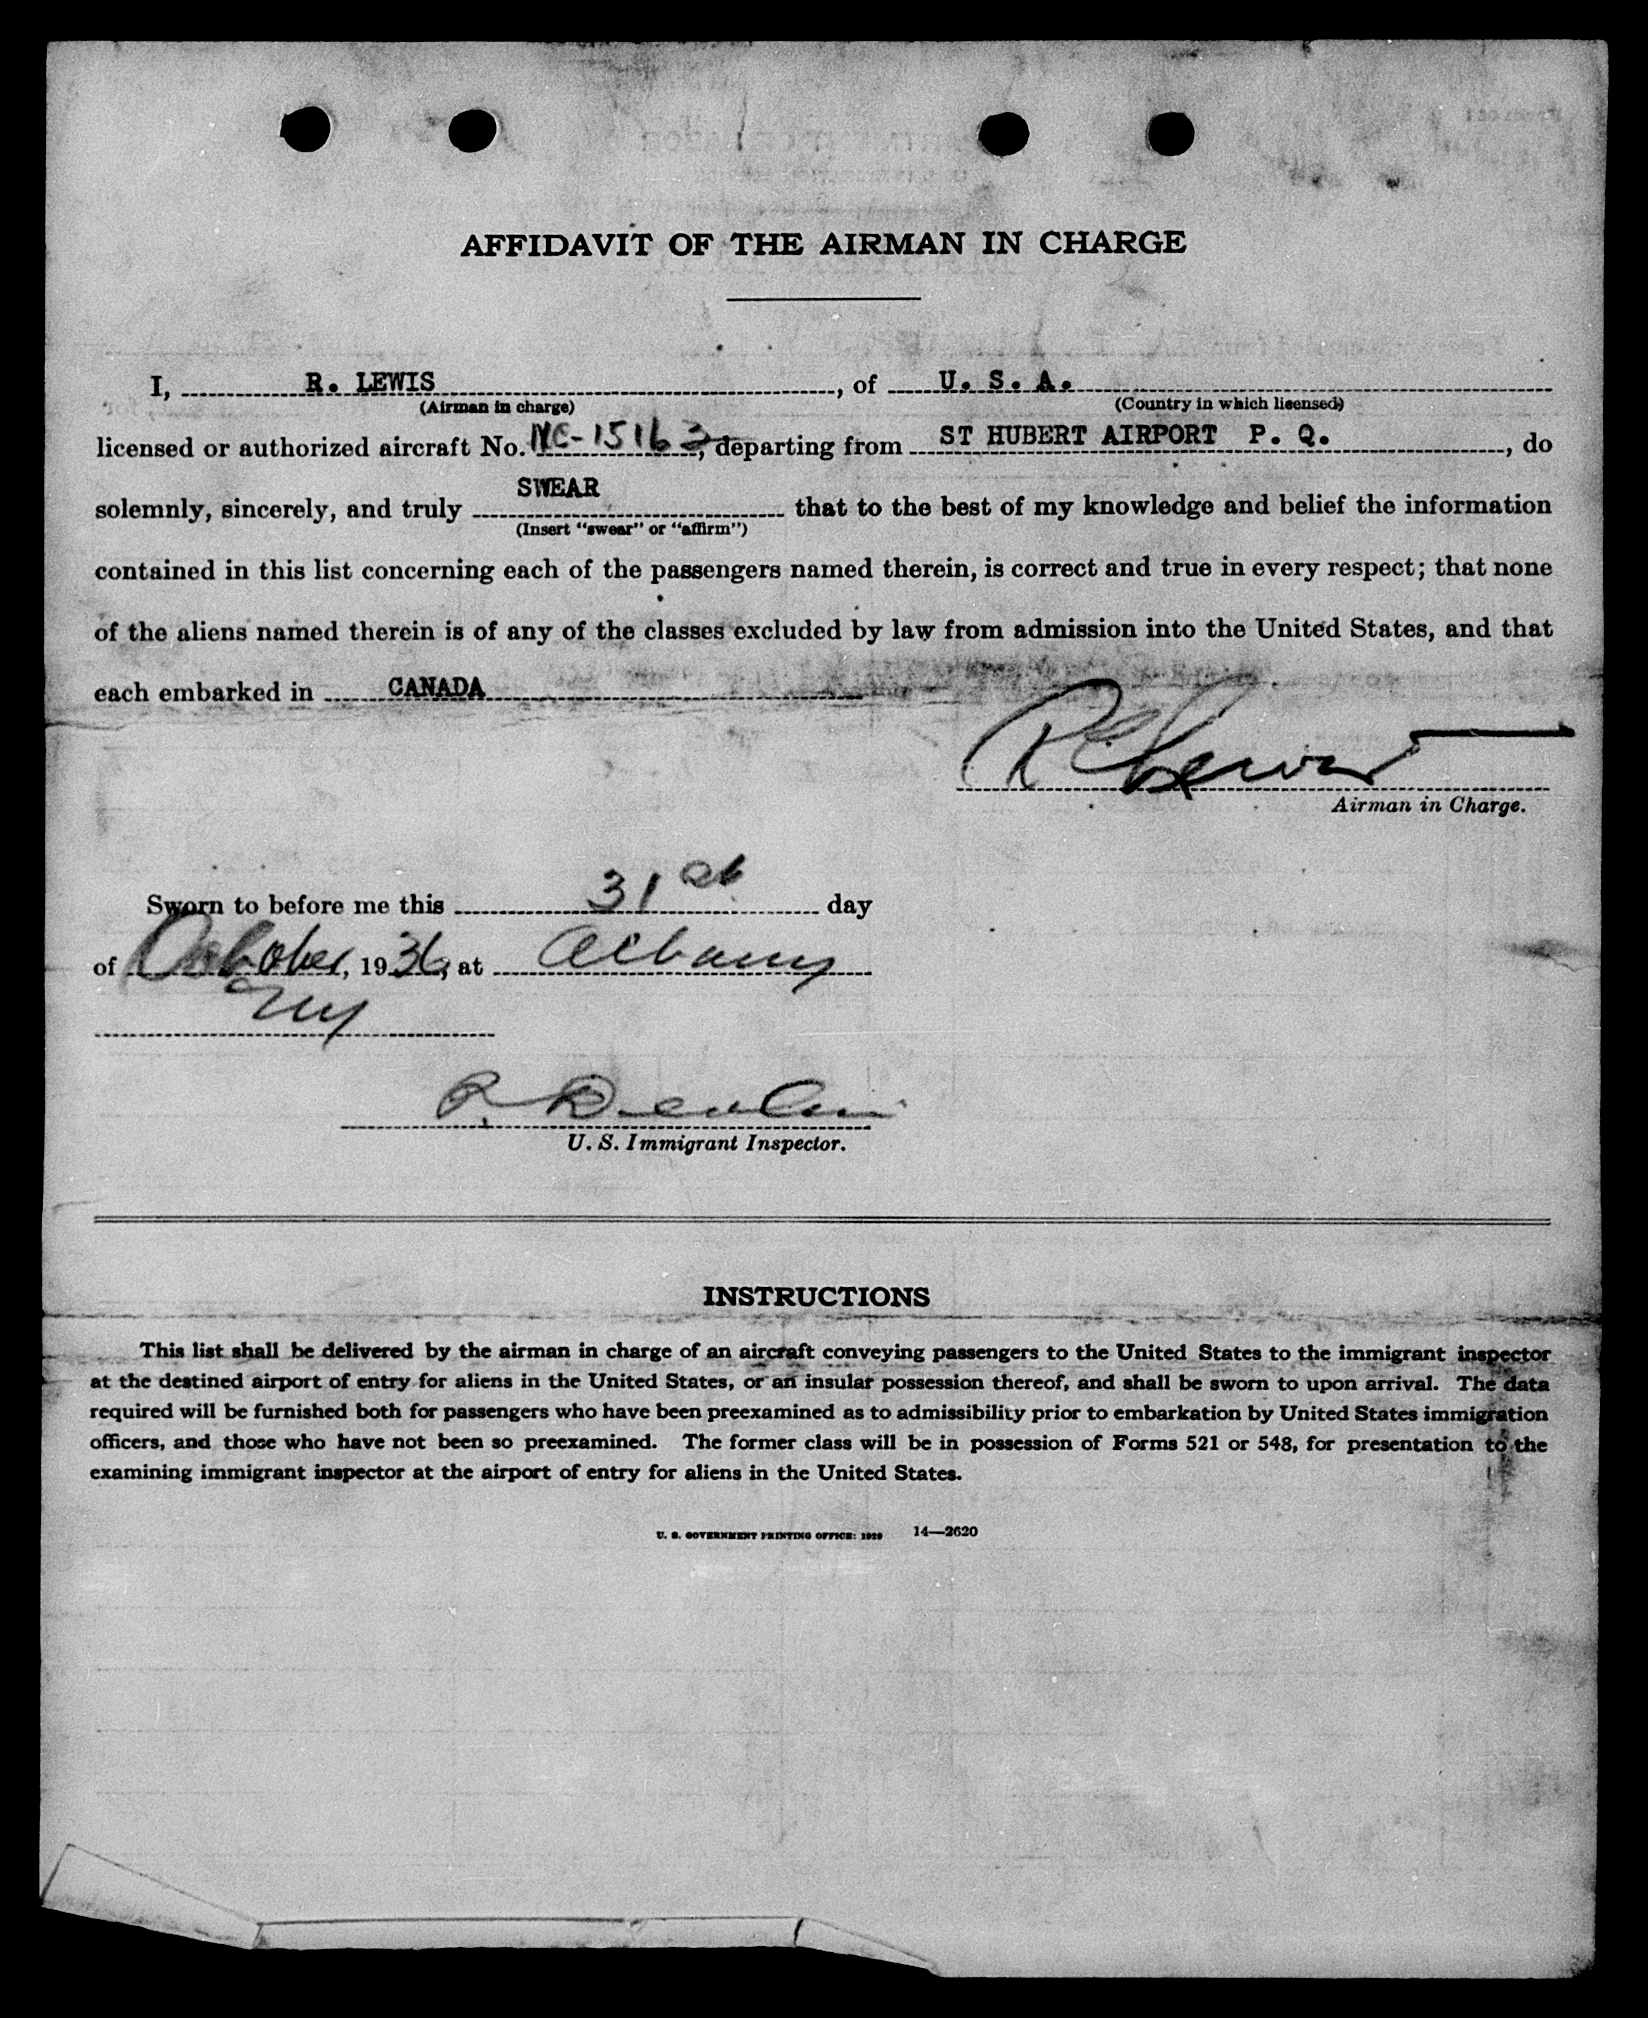 AFFIDAVIT OF THE AIRMAN IN CHARGE
I, R. LEWIS, of U. S. A.
(Airman in charge) (Country in which licensed)
licensed or authorized aircraft No. NC-15163, departing from ST HUBERT AIRPORT P. Q., do
solemnly, sincerely, and truly SWEAR that to the best of my knowledge and belief the information
(Insert "swear" or "affirm")
contained in this list concerning each of the passengers named therein, is correct and true in every respect; that none
of the aliens named therein is of any of the classes excluded by law from admission into the United States, and that
each embarked in CANADA
R C Lewis
Airman in Charge.
Sworn to before me this 31st day
of October, 1936, at Albany
NY
U. S. Immigrant Inspector.
INSTRUCTIONS
This list shall be delivered by the airman in charge of an aircraft conveying passengers to the United States to the immigrant inspector
at the destined airport of entry for aliens in the United States, or an insular possession thereof, and shall be sworn to upon arrival. The data
required will be furnished both for passengers who have been preexamined as to admissibility prior to embarkation by United States immigration
officers, and those who have not been so preexamined. The former class will be in possession of Forms 521 or 548, for presentation to the
examining immigrant inspector at the airport of entry for aliens in the United States.
U. S. GOVERNMENT PRINTING OFFICE: 1929 14—2620